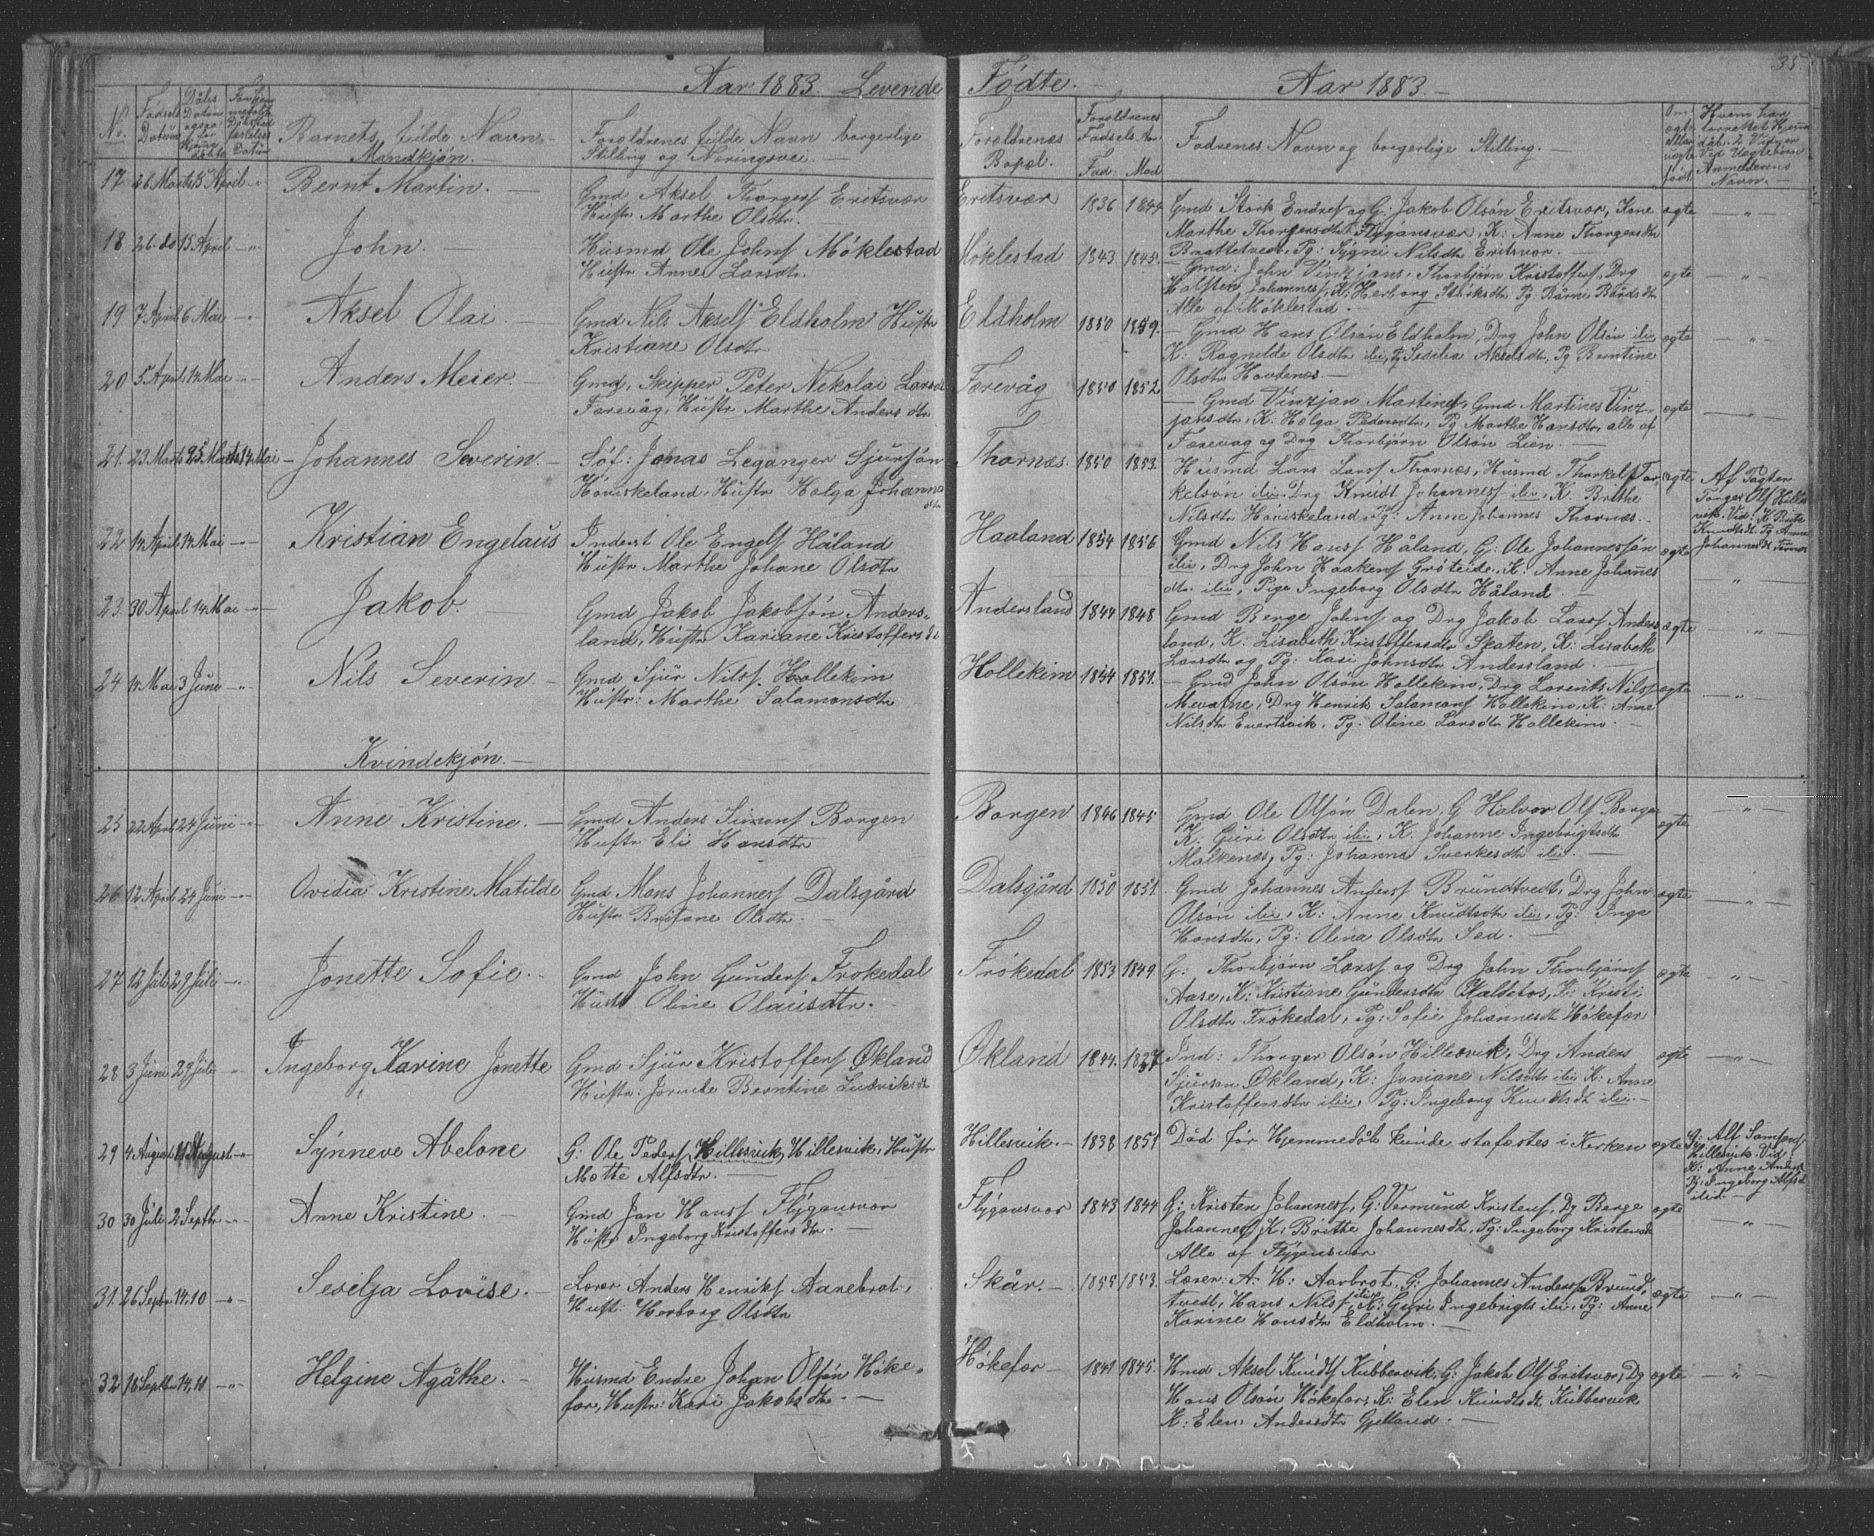 Aar 1883. Levende Fødte. Aar 1883. 35
No. Fødsels Datum Barnets fulde Navn. Forældrenes fulde Navn borgerlige
Mandkjøn. Stilling og Næringsvei.
Forældrenes Bopæl. Forældrenes Fødsels Aar Fad. Mod. Fadernes Navn og borgerlige Stilling.
17 26 Marts 15 April Bernt Martin. Gmd Aksel Thorgers Eritsvær
Hustr Marthe Olsdtr. Eritsvær 1836 1844 Gmd Stork Endres og G: Jakob Olsøn Eritsvær, Kone ægte
Marthe Thorgersdtr Flygansvær, K: Anne Thorgersdtr
Brattetvedt, Pg: Sygni Nilsdtr Eritsvær.
18 26 do 15 April John. Husmd Ole Johns Møklestad
Hustr Anne Larsdtr. Møklestad 1843 1845. Gmd: John Vinzjans, Thorbjørn Kristoffers, Drg ægte
Halsten Johannes, K: Herborg Størksdtr Pg: Barne Bårdsdtr
Alle af Møklestad.
19 7 April 6 Mai Aksel Olai Gmd Nils Aksels Eldholm Hustr
Kristiane Olsdtr Eldholm 1850 1859. Gmd Hans Olsøn Eldholm, Drg John Olsøn ilii ægte
K: Ragnilde Olsdtr ilii, Pg Sesilia Akselsdtr, Pg Berntine
Olsdtr Hovdenes
20 5 April 14 Mai Anders Meier Gmd, Skipper Peter Nekolai Lars
Færevåg, Hustr Marthe Andersdtr Færevåg 1850 1852 Gmd Vinzjan Martines, Gmd Martines Vinz- ægte
jansdtr, K: Helga Pedersdtr, Pg Marthe Hansdtr, alle af
Færevåg og Drg Thorbjørn Olsøn Lien.
21. 23 Marts 25 Marts 14 Mai Johannes Severin. Søf: Jonas Leganger Sjursøn
Høviskeland, Hustr Helga Johannes
dtr Thornæs. 1850 1853. Husmd Lars Lars Thornæs, Husmd Thorkels Tor ægte Af Fogten
kelsøn ilii. Drg Knudt Johannes ilii, K. Brithe
Nilsdtr Høviskeland, Pg: Anne Johannes Thornæs.
22 14 April 14 Mai Kristian Engelaus Inderst Ole Engels Håland
Hustr Marthe Johane Olsdtr Haaland 1854 1856 Gmd Nils Hans Håland, G: Ole Johannessøn ægte
ilii, Drg John Haakens Grøteide, K. Anne Johannes
dtr. ilii, Pige Ingeborg Olsdtr Håland.
23. 30 April 14. Mai Jakob. Gmd Jakob Jakobsøn Anders-
land, Hustr Kariane Kristoffersdtr Andersland 1844 1848 Gmd Berge Johns og Drg Jakob Lars Anders ægte
land, K: Lisabeth Kristoffersdtr Skaten, K: Lisabeth
Larsdtr og Pg: Kari Johnsdtr Andersland.
24 14 Mai 3 Juni Nils Severin Gmd Sjur Nils Hollekim
Hustr: Marthe Salamonsdtr Hollekim 1844 1851. Gmd John Olsøn Hollekim, Drg Lorents Nils ægte
Mevatne, Drg Henrik Salamons Hollekim, K: Anne
Nilsdtr Evertsvik, Pg. Oline Larsdtr Hollekim.
Kvindekjøn.
25 22 April 24 Juni Anne Kristine. Gmd Anders Simons Borgen
Hustr Eli Hansdtr Borgen 1846 1845 Gmd Ole Olsøn Dalen, G Halvor Ols Borgen ægte
K: Guri Olsdtr ilii, K: Johanne Ingebrigtsdtr
Malkenes, Pg: Johanna Sverkesdtr ilii.
26 12 April 24 Juni Ovidia Kristine Matilde Gmd Mons Johannes Dalsgård
Hustr Britane Olsdtr. Dalsgård 1850 1851. Gmd Johannes Anders Brundtvedt, Drg John ægte
Olsøn ilii, K: Anne Knudtsdtr ilii, Pg: Inga
Hansdtr, Pg: Olina Olsdtr Sæd.
27 12 Juli 29 Juli Jonette Sofie. Gmd John Gunders Frøkedal
Hustr Oline Olausdtr. Frøkedal 1853 1849 G: Thorbjørn Lars og Drg John Thorbjørns ægte
Aase, K: Kristiane Gundersdtr Kaldefos, K: Kristi
Olsdtr Frøkedal, Pg: Sofie Johannesdt Høkefær
28 3 Juni 29 Juli Ingeborg Karine Jonette Gmd Sjur Kristoffers Økland
Hustr: Jornde Berntine Ludviksdt Økland 1844. 1837 Ind: Thorger Olsøn Hillesvik, Drg Anders ægte
Sjurson Økland, K: Joniane Nilsdtr ilii K: Anne
Kristoffersdtr ilii, Pg: Ingeborg Knudtsdt ilii.
29 4 August August Synneve Abelone G. Ole Peders Hillesvik, Hillesvik, Hustr
Motte Alfsdtr. Hillesvik. 1838 1851 Død før Hjemmedåb kunde stafæstes i Kirken ægte G: Alf Samsons
Hillesvik. Vid
K: Anne Anders
Pg: Ingeborg Alfsd
ilii.
30 30 Juli 2 Septbr Anne Kristine. Gmd Jan Hans Flygansvær
Hustr Ingeborg Kristoffersdtr. Flygansvær 1843 1844 G: Kristen Johannes, G: Vermund Kristens, Dg Berge ægte
Johannes K: Brithe Johannesdt, Pg: Ingeborg Kristensdt
Alle af Flygansvær
31. 26 Septbr 14,10 Sesilja Lovise. Lærer Anders Henriks Aarebrot,
Hust: Herborg Olsdtr Skår. 1855 1853. Lærer: A. H: Aarbrot, G: Johannes Anders Brund, ægte
tvedt, Hans Nils ilii K: Guri Ingebrigts ilii, Pg: Anne
Karine Hansdtr Eldholm.
32 16 Septbr 14,10 Helgine Agåthe. Husmd Endre Johan Olsøn Høke-
fær, Hustr: Kari Jakobsdtr. Høkefær 1841 1845. Hmd Aksel Knudts Kubbervik, G: Jakob Ols Eritsvær, Dg ægte
Hans Olsøn Høkefær, K: Elen Knudtsdt Kubbervik
K: Elen Andersdtr Gjelland.